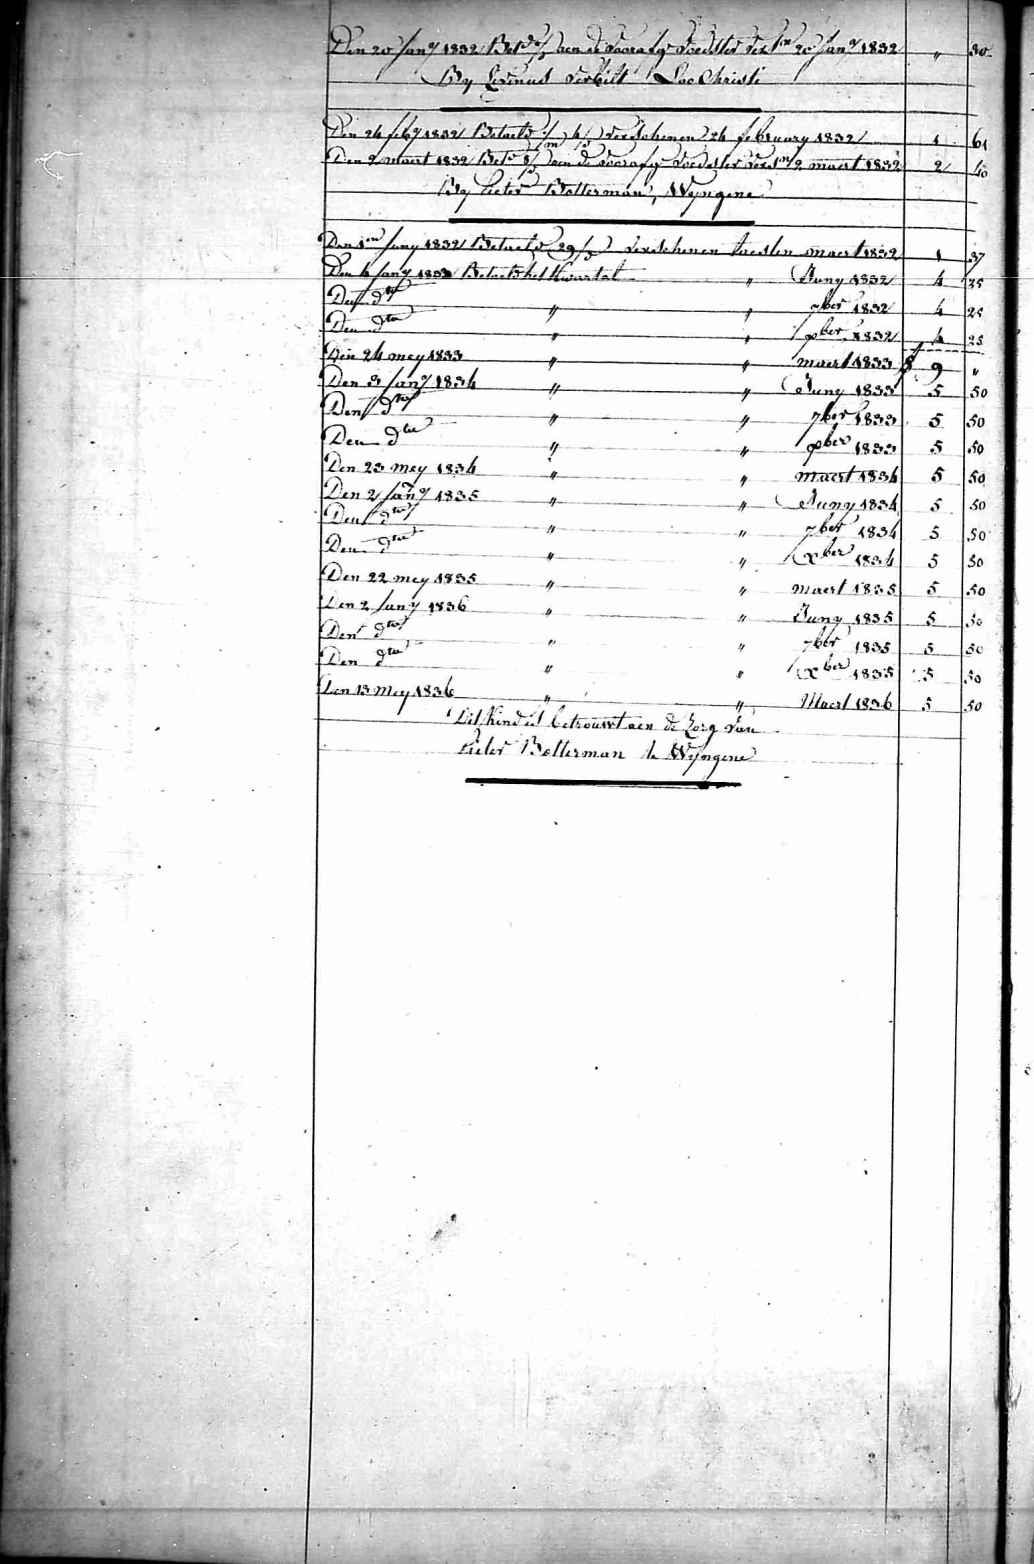 Den 20 Jany 1832 Betd aen de voorafge voedster verst 20 Jany 1832 " 30
By Livinus Verbilt Loo Christi
Den 24 feby 1832 Betaeld verschenen 24 february 1832 1 61
Den 2 maert 1832 Betd aen de voorafge voedster verst 2 maert 1832 2 40
By Pieter Bolterman, Wyngene
Den 1en Juny 1832 Betaeld 29/ verschenen maert 1832 1 37
Den 4 Jany 1833 Betaeld het Kwartal " Juny 1832 4 25
Den dto " " 7ber 1832 4 25
Den dto " " xber 1832 4 25
Den 24 mey 1833 " " maert 1833 9 "
Den 3 Jany 1834 " " Juny 1833 5 50
Den dto " " 7ber 1833 5 50
Den dto " " xber 1833 5 50
Den 23 mey 1834 " " maert 1834 5 50
Den 2 Jany 1835 " " Juny 1834 5 50
Den dto " " 7ber 1834 5 50
Den dto " " xber 1834 5 50
Den 22 mey 1835 " " maert 1835 5 50
Den 2 Jany 1836 " " Juny 1835 5 50
Den dto " " 7ber 1835 5 50
Den dto " " xber 1835 5 50
Den 13 Mey 1836 " " Maert 1836 5 50
Dit Kind is betrouwt aen de Zorg van
Pieter Bolterman te Wyngene